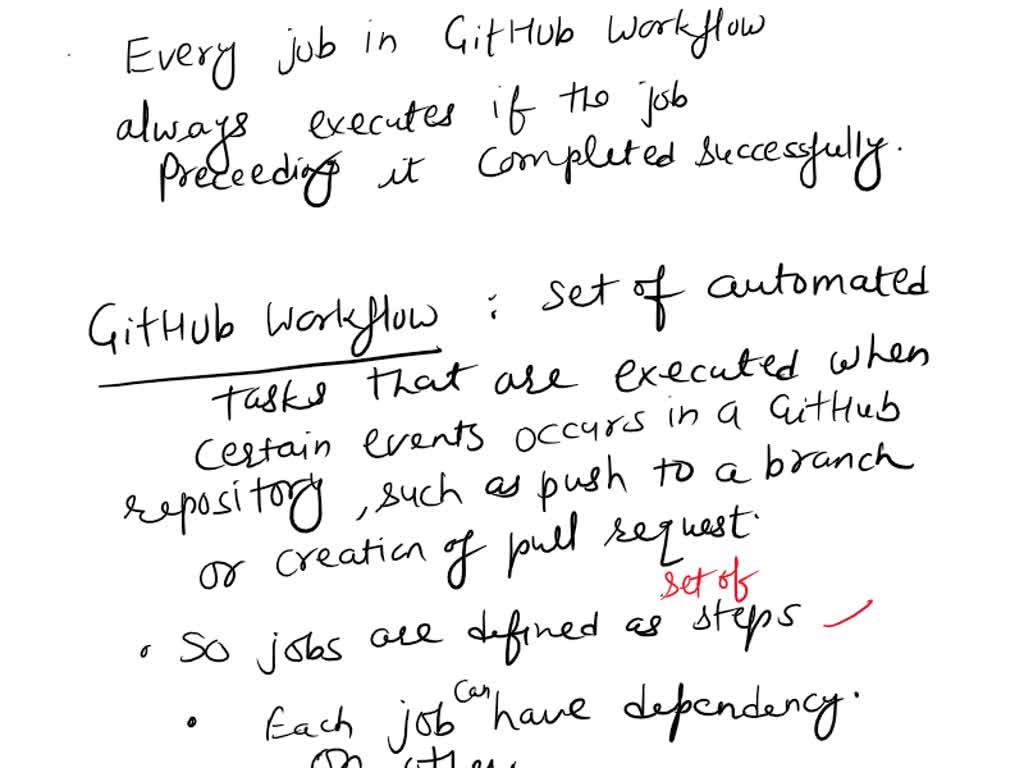 Every job in GitHub Workflow
always executes if the job
Preceeding it completed successfully.
GitHub Workflow : set of automated
tasks that are executed when
certain events occurs in a GitHub
repository, such as push to a branch
or creation of pull request.
set of
• So jobs are defined as steps
Can
• Each job have dependency.
on other